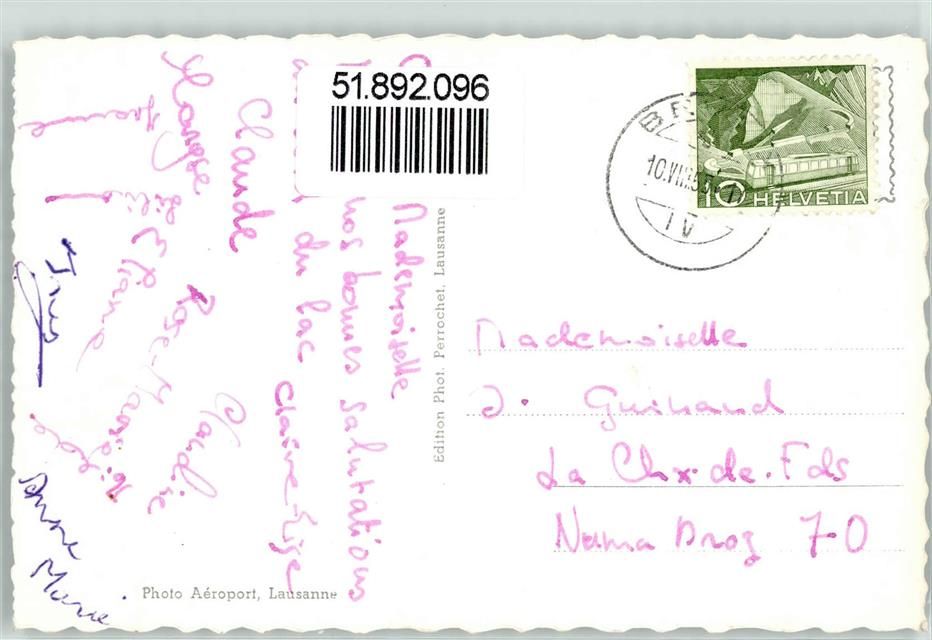 51.892.096
10.VIII.55
10 HELVETIA
Mademoiselle
nos bonnes salutations
du lac
Claire-Lise
Claude
Rose-Marie
Claudine
Eliane
Anne Marie
Edition Phot. Perrochet, Lausanne
Photo Aéroport, Lausanne
Mademoiselle
J. Guinand
La Chx-de-Fds
Numa Droz 70